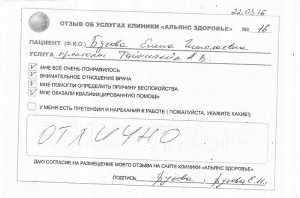 22.03.16
ОТЗЫВ ОБ УСЛУГАХ КЛИНИКИ «АЛЬЯНС ЗДОРОВЬЕ» № 16
ПАЦИЕНТ (Ф.И.О.) Елена Николаевна
УСЛУГА А.В.
МНЕ ВСЁ ОЧЕНЬ ПОНРАВИЛОСЬ
ВНИМАТЕЛЬНОЕ ОТНОШЕНИЕ ВРАЧА
МНЕ ПОМОГЛИ ОПРЕДЕЛИТЬ ПРИЧИНУ БЕСПОКОЙСТВА
МНЕ ОКАЗАЛИ КВАЛИФИЦИРОВАННУЮ ПОМОЩЬ
У МЕНЯ ЕСТЬ ПРЕТЕНЗИИ И НАРЕКАНИЯ К РАБОТЕ ( ПОЖАЛУЙСТА, УКАЖИТЕ КАКИЕ!)
ОТЛИЧНО
ДАЮ СОГЛАСИЕ НА РАЗМЕЩЕНИЕ МОЕГО ОТЗЫВА НА САЙТЕ КЛИНИКИ «АЛЬЯНС ЗДОРОВЬЕ»
ПОДПИСЬ